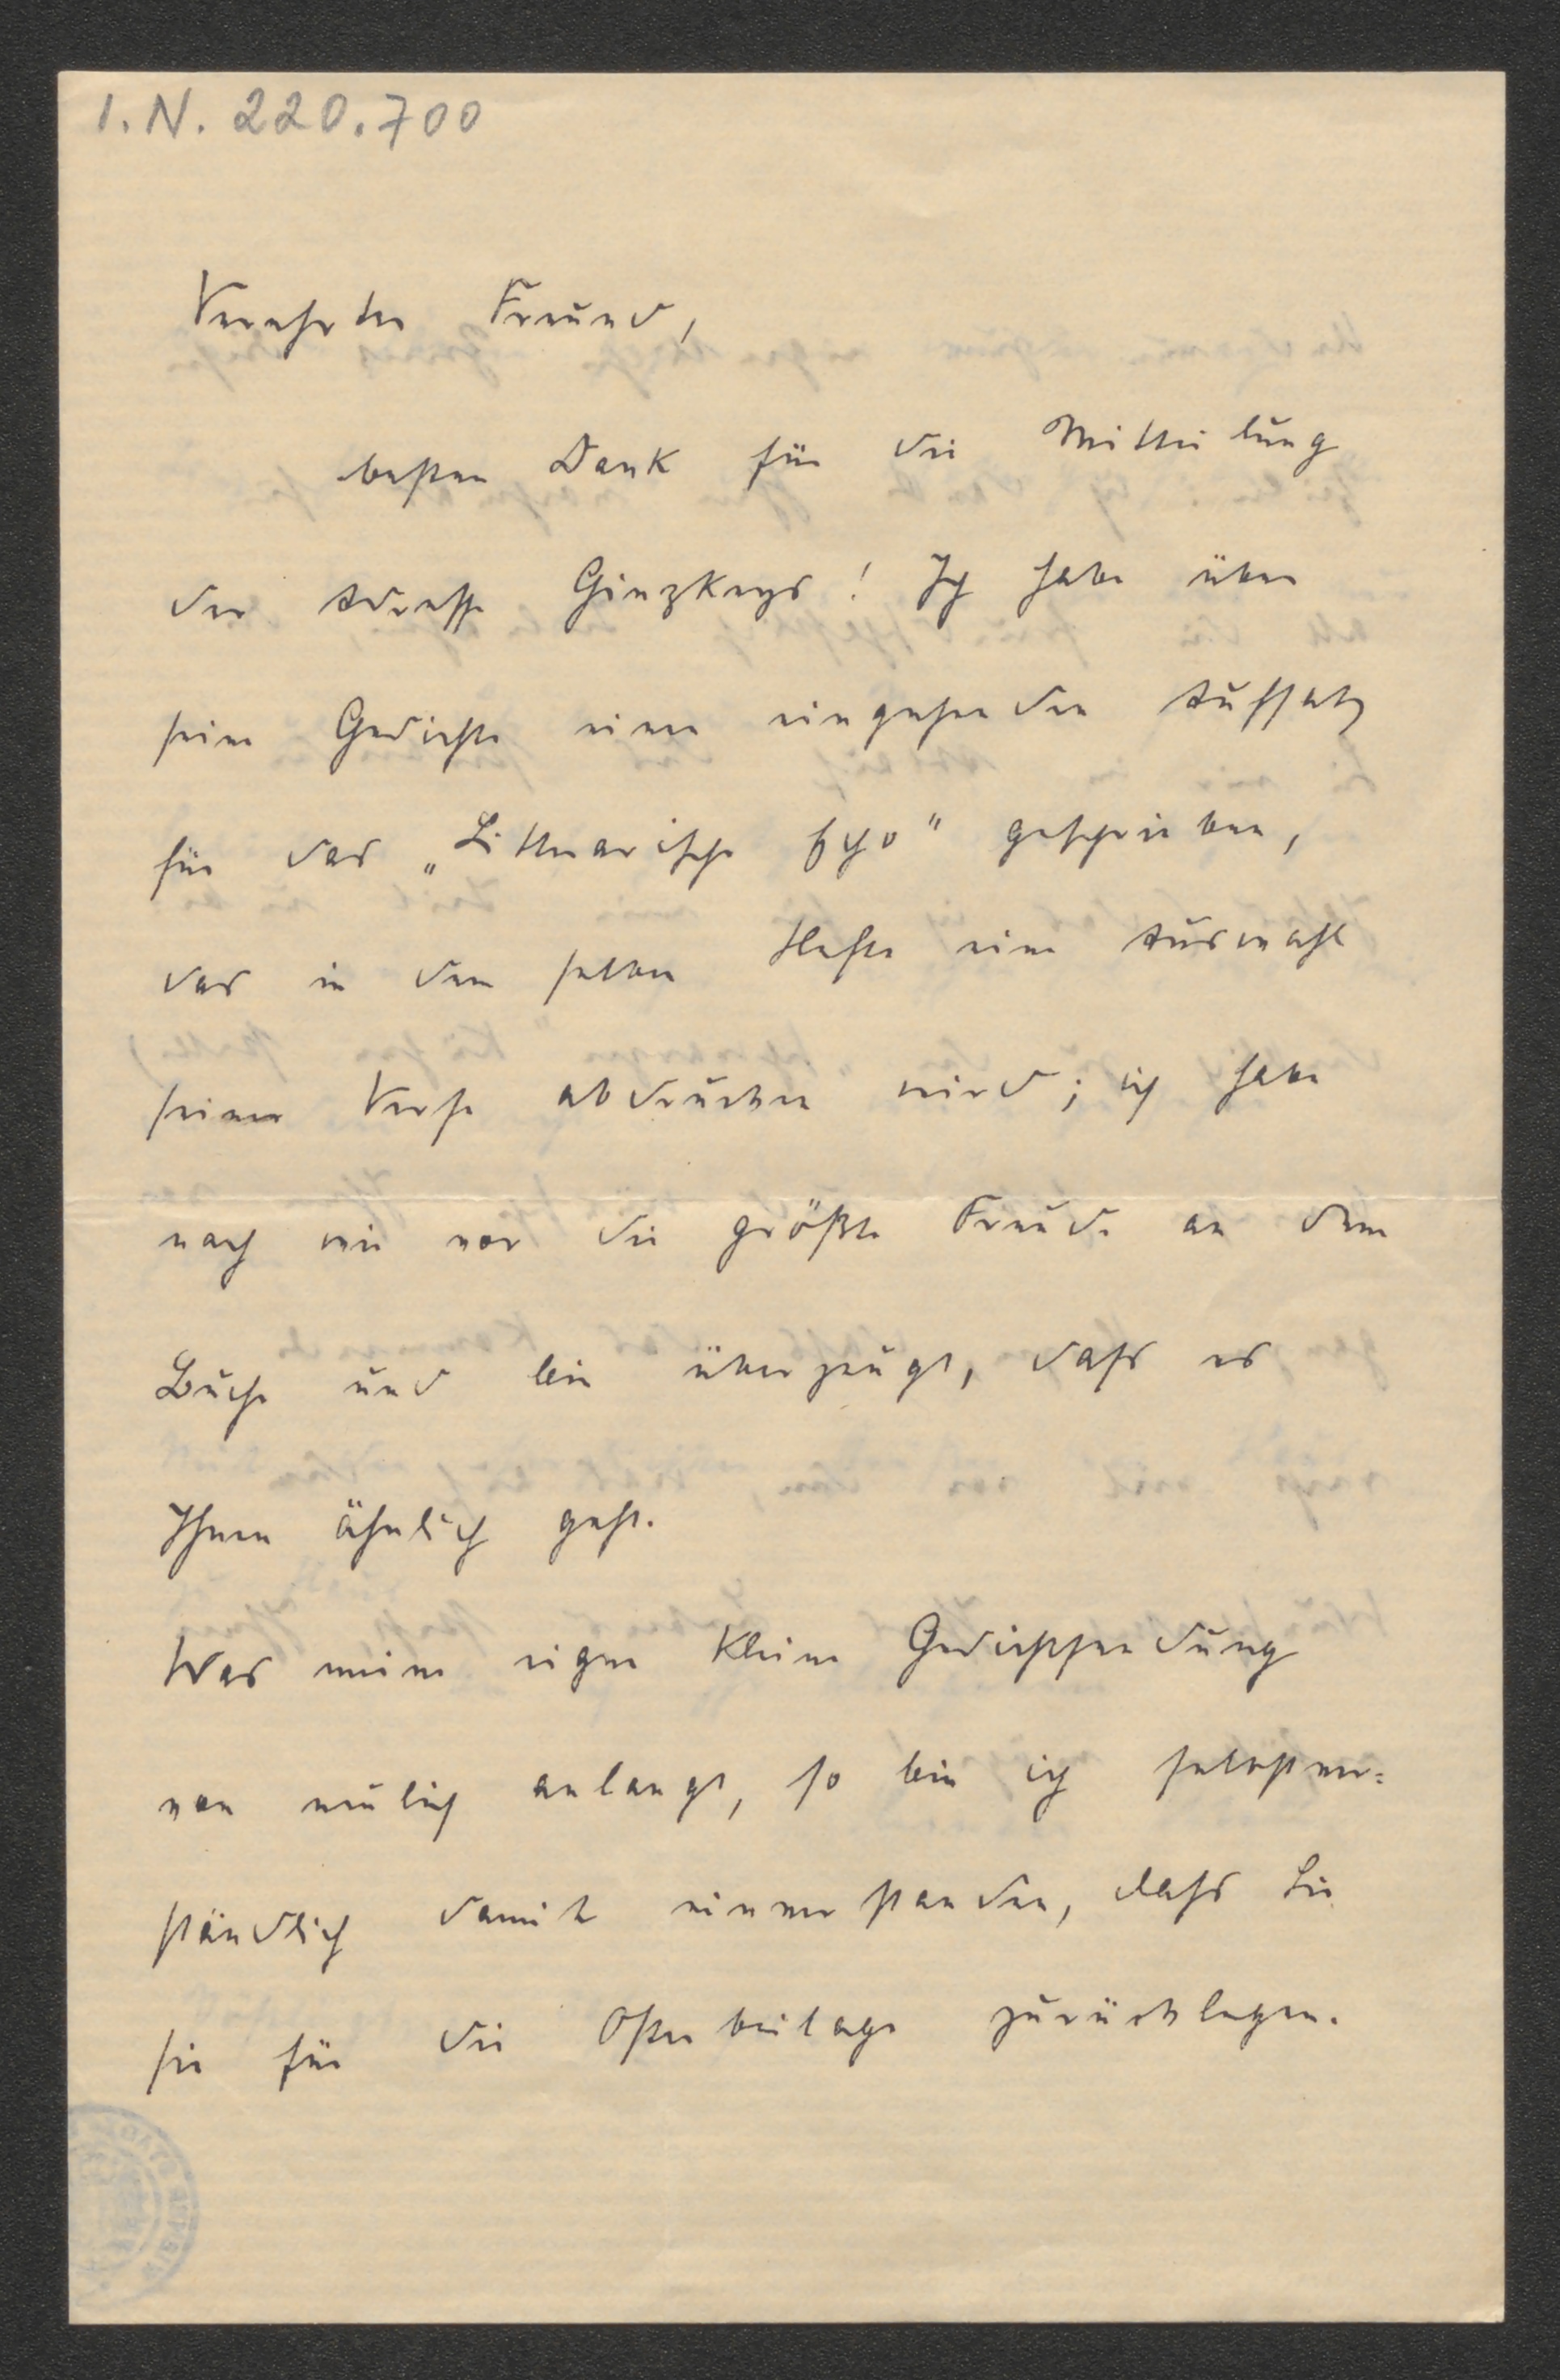 I.N. 220.700
Verehrter Freund,
besten Dank für die Mitteilung
der Adresse Ginzkeys! Ich habe über
seine Gedichte einen eingehenden Aufsatz
für das „Litterarische Echo" geschrieben,
das in dem selben Hefte eine Auswahl
seiner Verse abdrucken wird; ich habe
nach wie vor die größte Freude an dem
Buche und bin überzeugt, dass es
Ihnen ähnlich geht.
Was meine eigene kleine Gedichtsendung
von neulich anlangt, so bin ich selbstver=
ständlich damit einverstanden, dass Sie
sie für die Osterbeilage zurücklegen.